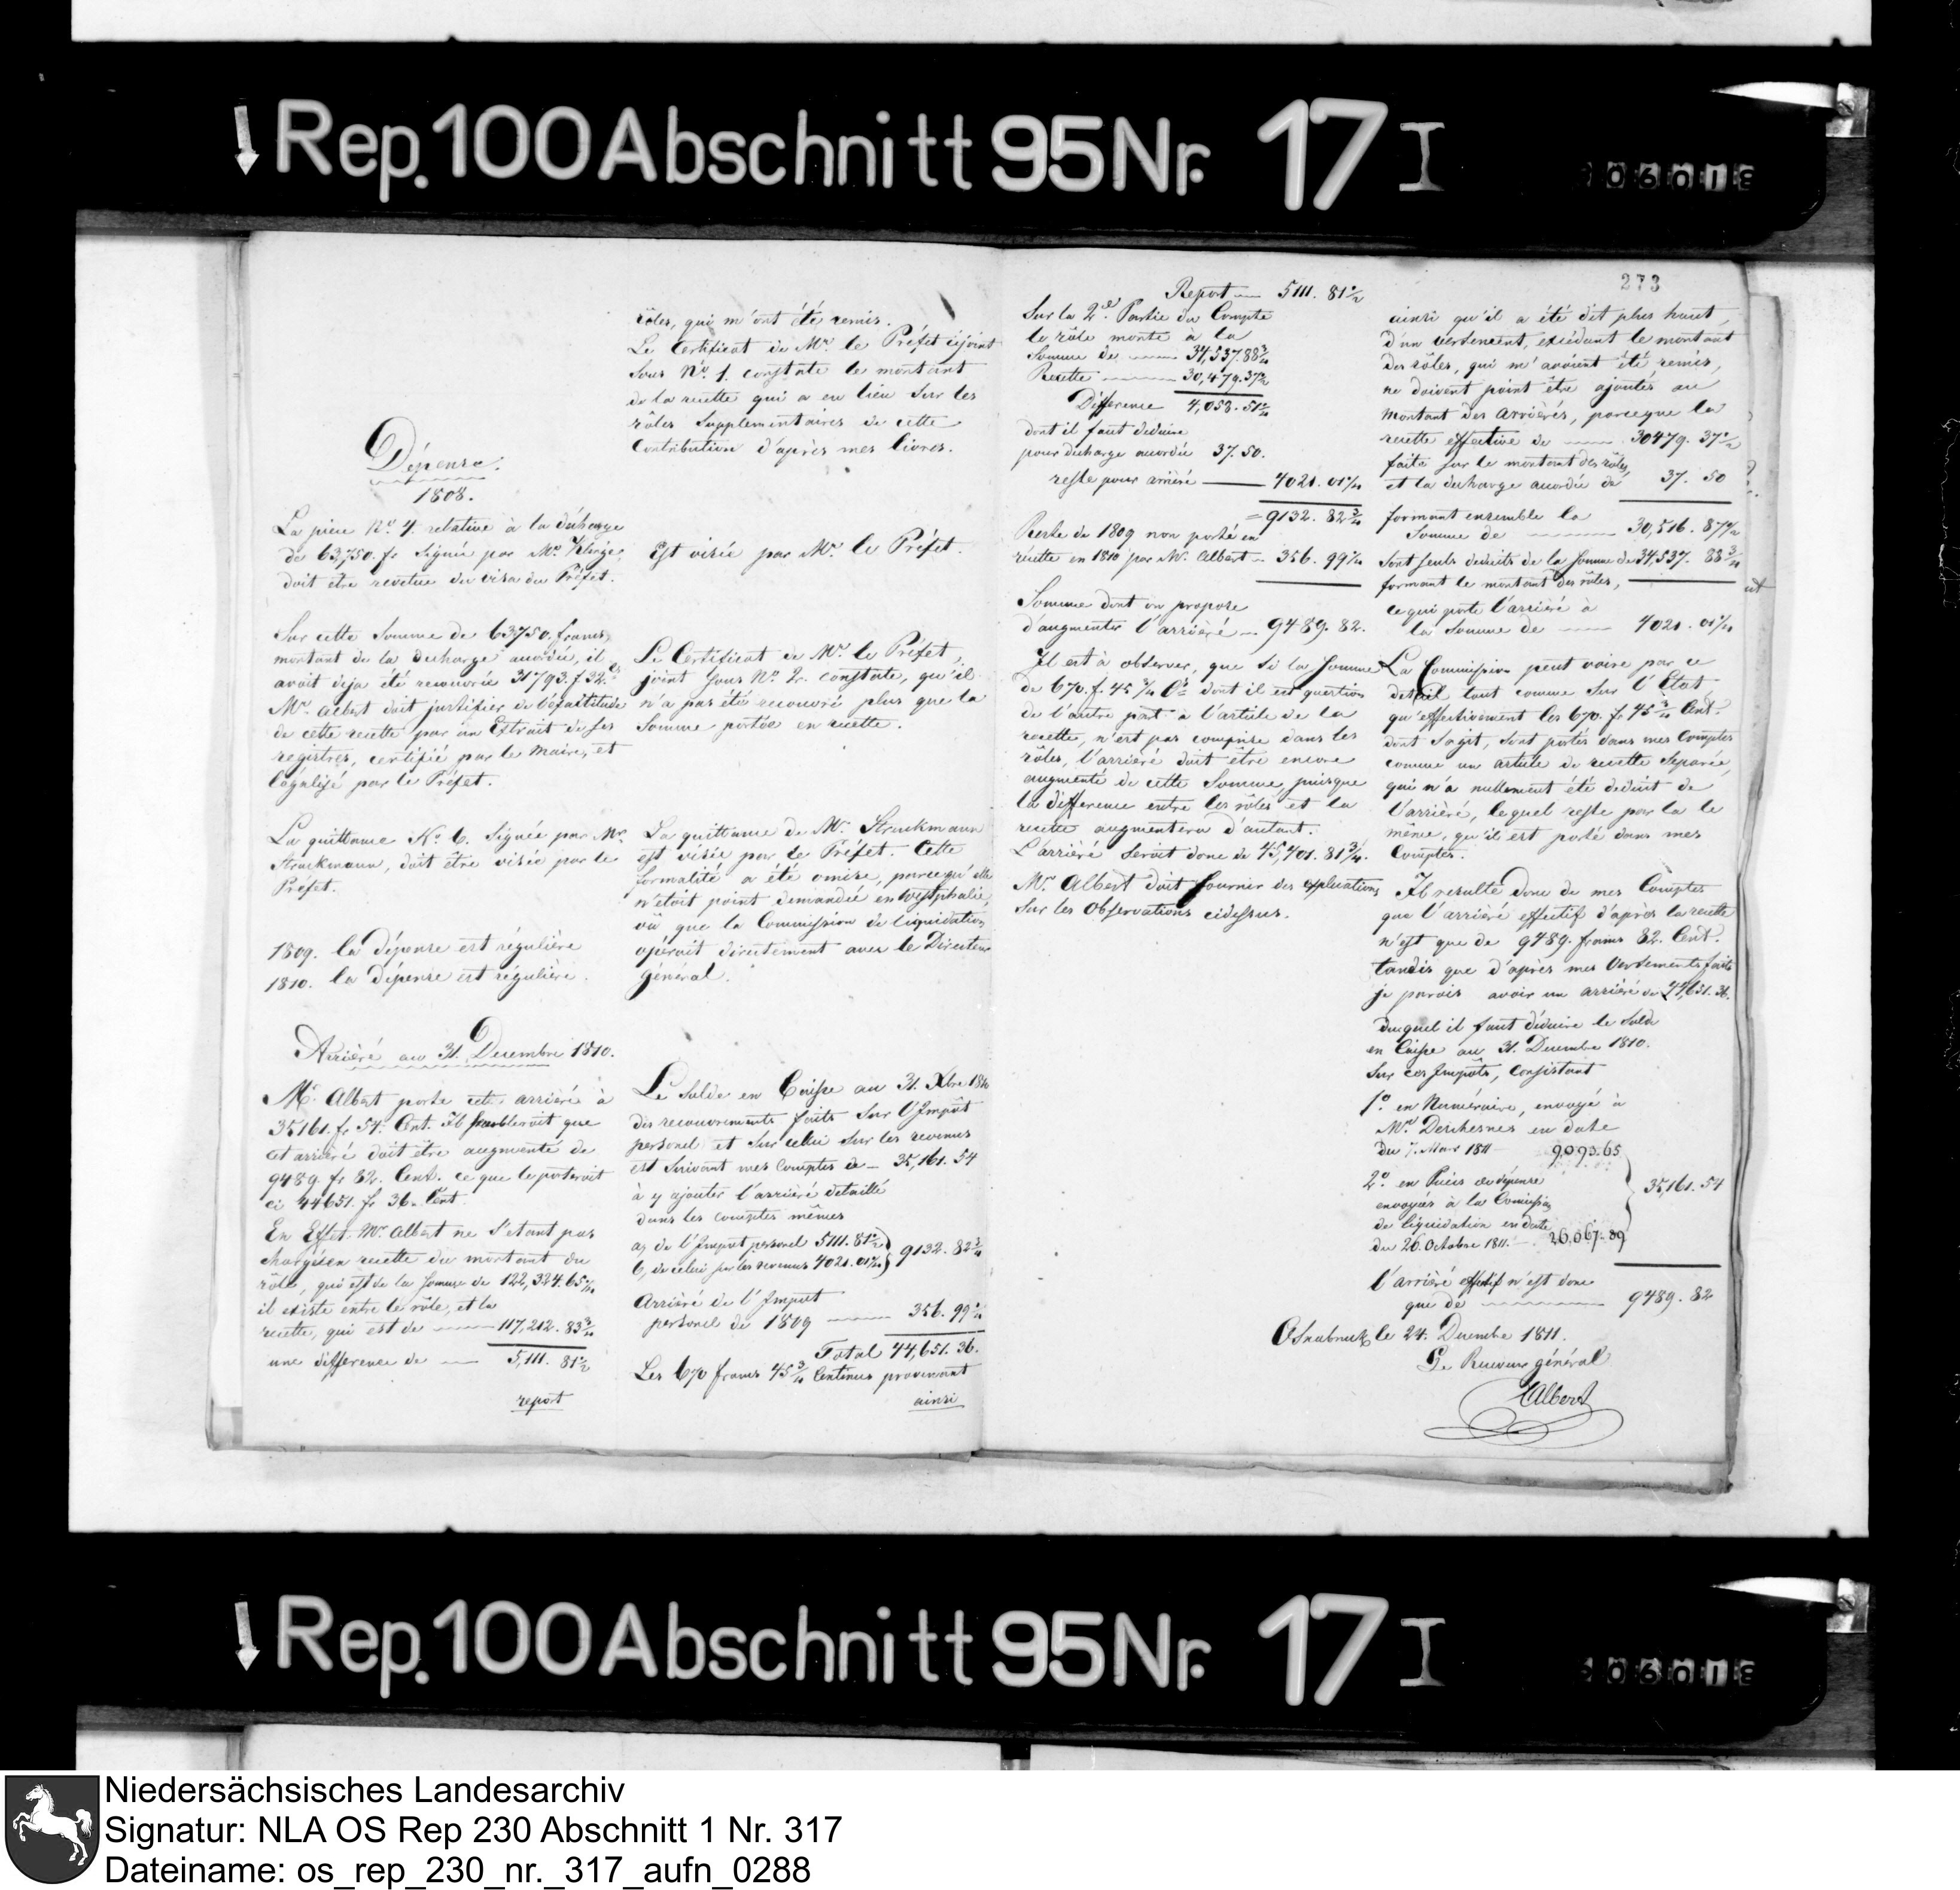 Rep. 100 Abschnitt 95 Nr. 17 I
Dépense.
1808.
La piece No. 4. relative à la décharge
de 63,750. fr signée par Mr. Kluge,
doit etre revetue du visa du Préfet.
Sur cette Somme de 63,750. francs,
montant de la decharge accordée, il
avait deja été recouvrée 31793. f 32. Cs.
Mr. Albert doit justifier de l'éxactitude
de cette recette par un Extrait de ses
registres, certifié par le Maire, et
légalisé par le Préfet.
La quittance No. 6. Signée par Mr.
Struckmann, doit être visée par le
Préfet.
1809. la dépense est régulière
1810. la dépense est régulière.
Arriéré au 31. Decembre 1810.
Mr. Albert porte cet arriéré à
35161. fr 54. Cent. Il sembleroit que
cet arriéré doit être augmenté de
9489. fr 82. Cent. ce que le porteroit
ci 44651. fr 36. Cent.
En Effet Mr. Albert ne s'etant pas
chargé en recette du montant du
rôle, qui est de la somme de 122,324. 65 2/4
il existe entre le rôle, et la
recette, qui est de 117,212. 83 3/4
une différence de 5,111. 81 1/2
report
rôles, qui m'ont été remis.
Le Certificat de Mr. le Préfet cijoint
sous No. 1. constate le montant
de la recette qui a eu lieu sur les
rôles Supplementaires de cette
Contribution d'après mes livres.
Est visée par Mr. le Préfet.
Le Certificat de Mr. le Préfet,
joint sous No. 2. constate, qu'il
n'a pas été recouvré plus que la
Somme portée en recette.
La quittance de Mr. Struckmann
est visée par le Préfet. Cette
formalité a été omise, parcequ'elle
n'etoit point demandée en Westphalie,
où que la Commission de liquidation
opéroit directement avec le Directeur
général.
Le Solde en Caisse au 31. Xbre 1810
des recouvrements faits sur l'Impôt
personel et sur celui sur les revenus
est suivant mes Comptes de 35,161. 54
à y ajouter l'arriéré detaillé
dans les comptes mêmes
a, de l'Impot personel 5111. 81 1/2
b, de celui sur les revenus 4021. 01 1/4 } 9132. 82 3/4
Arriéré de l'Impot
personel de 1809 356. 99 1/4
Total 44,651. 36.
Les 670 francs 45 3/4 Centimes provenant
ainsi
273
Report 5111. 81 1/2
Sur la 2de. Partie du Compte
le rôle monte à la
Somme de 34,537. 88 3/4
Recette 30,479. 37 2/4
Différence 4,058. 51 1/4
dont il faut deduire
pour decharge accordée 37. 50.
reste pour arriéré 4021. 01 1/4
= 9132. 82 3/4
Reste de 1809 non porté en
recette en 1810 par Mr. Albert 356. 99 1/4
Somme dont on propose
d'augmenter l'arriéré 9489. 82.
Il est à observer, que si la Somme
de 670. f. 45 3/4 Cs. dont il est question
de l'autre part a l'article de la
recette, n'est pas comprise dans les
rôles, l'arriéré doit être encore
augmenté de cette Somme, puisque
la difference entre les rôles et la
recette augmentera d'autant.
L'arriéré seroit donc de 45,401. 81 3/4.
Mr. Albert doit fournir des explications
sur les Observations cidessus.
ainsi qu'il a été dit plus haut,
d'un versement, excédant le montant
des rôles, qui m'avoient été remis,
ne doivent point être ajoutés au
montant des arriérés, parceque la
recette effective de 30479. 37 2/4
faite sur le montant des rôles,
et la decharge accordée de 37. 50
formant ensemble la
Somme de 30,516. 87 2/4
sont seuls deduits de la somme de 34,537. 88 3/4
formant le montant des rôles,
ce qui porte l'arriéré à
la Somme de 4021. 01 1/4
La Commission peut voire par ce
detail tout comme sur l'Etat,
qu'effectivement les 670. fr 45 3/4 Cent.
dont s'agit, sont portés dans mes Comptes
comme un article de recette separée,
qui n'a nullement été deduit de
l'arriéré, lequel reste par la le
même, qu'il est porté dans mes
Comptes.
Il resulte donc de mes Comptes
que l'arriéré effectif d'après la recette
n'est que de 9489. francs 82. Cent.
tandis que d'après mes Versements faits
je parois avoir un arriéré de 44,651. 36.
duquel il faut déduire le Solde
en Caisse au 31. Decembre 1810.
sur ces Impôts, consistant
1o. en Numéraire, envoyé à
Mr. Deschesnes en date
du 7. Mars 1811 9093. 65
2o. en Pièces de dépense
envoyées à la Comission
de liquidation en date
du 26. Octobre 1811. 26,067. 89 } 35,161. 54
l'arriéré effectif n'est donc
que de 9489. 82
Osnabruck le 24. Decembre 1811.
Le Receveur général
Albert
Rep. 100 Abschnitt 95 Nr. 17 I
Niedersächsisches Landesarchiv
Signatur: NLA OS Rep 230 Abschnitt 1 Nr. 317
Dateiname: os_rep_230_nr._317_aufn_0288